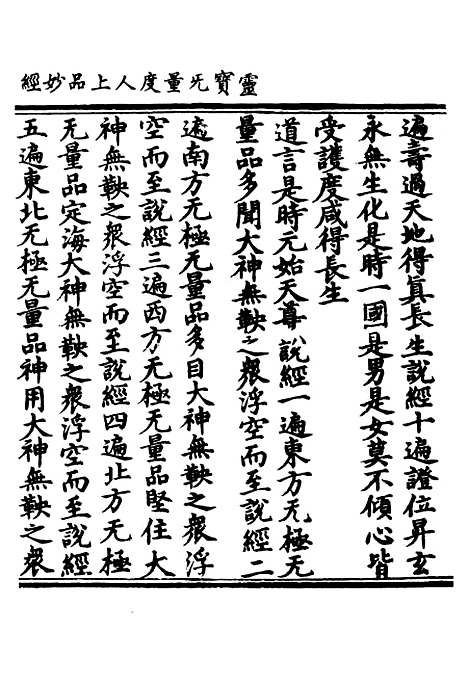 靈寳无量度人上品妙經
遍壽過天地得真長生說經十遍證位昇玄
永無生化是時一國是男是女莫不傾心皆
受護度咸得長生
道言是時元始天尊說經一遍東方无極无
量品多聞大神無鞅之衆浮空而至說經二
遍南方无極无量品多目大神無鞅之衆浮
空而至說經三遍西方无極无量品堅住大
神無鞅之衆浮空而至說經四遍北方无極
无量品定海大神無鞅之衆浮空而至說經
五遍東北无極无量品神用大神無鞅之衆